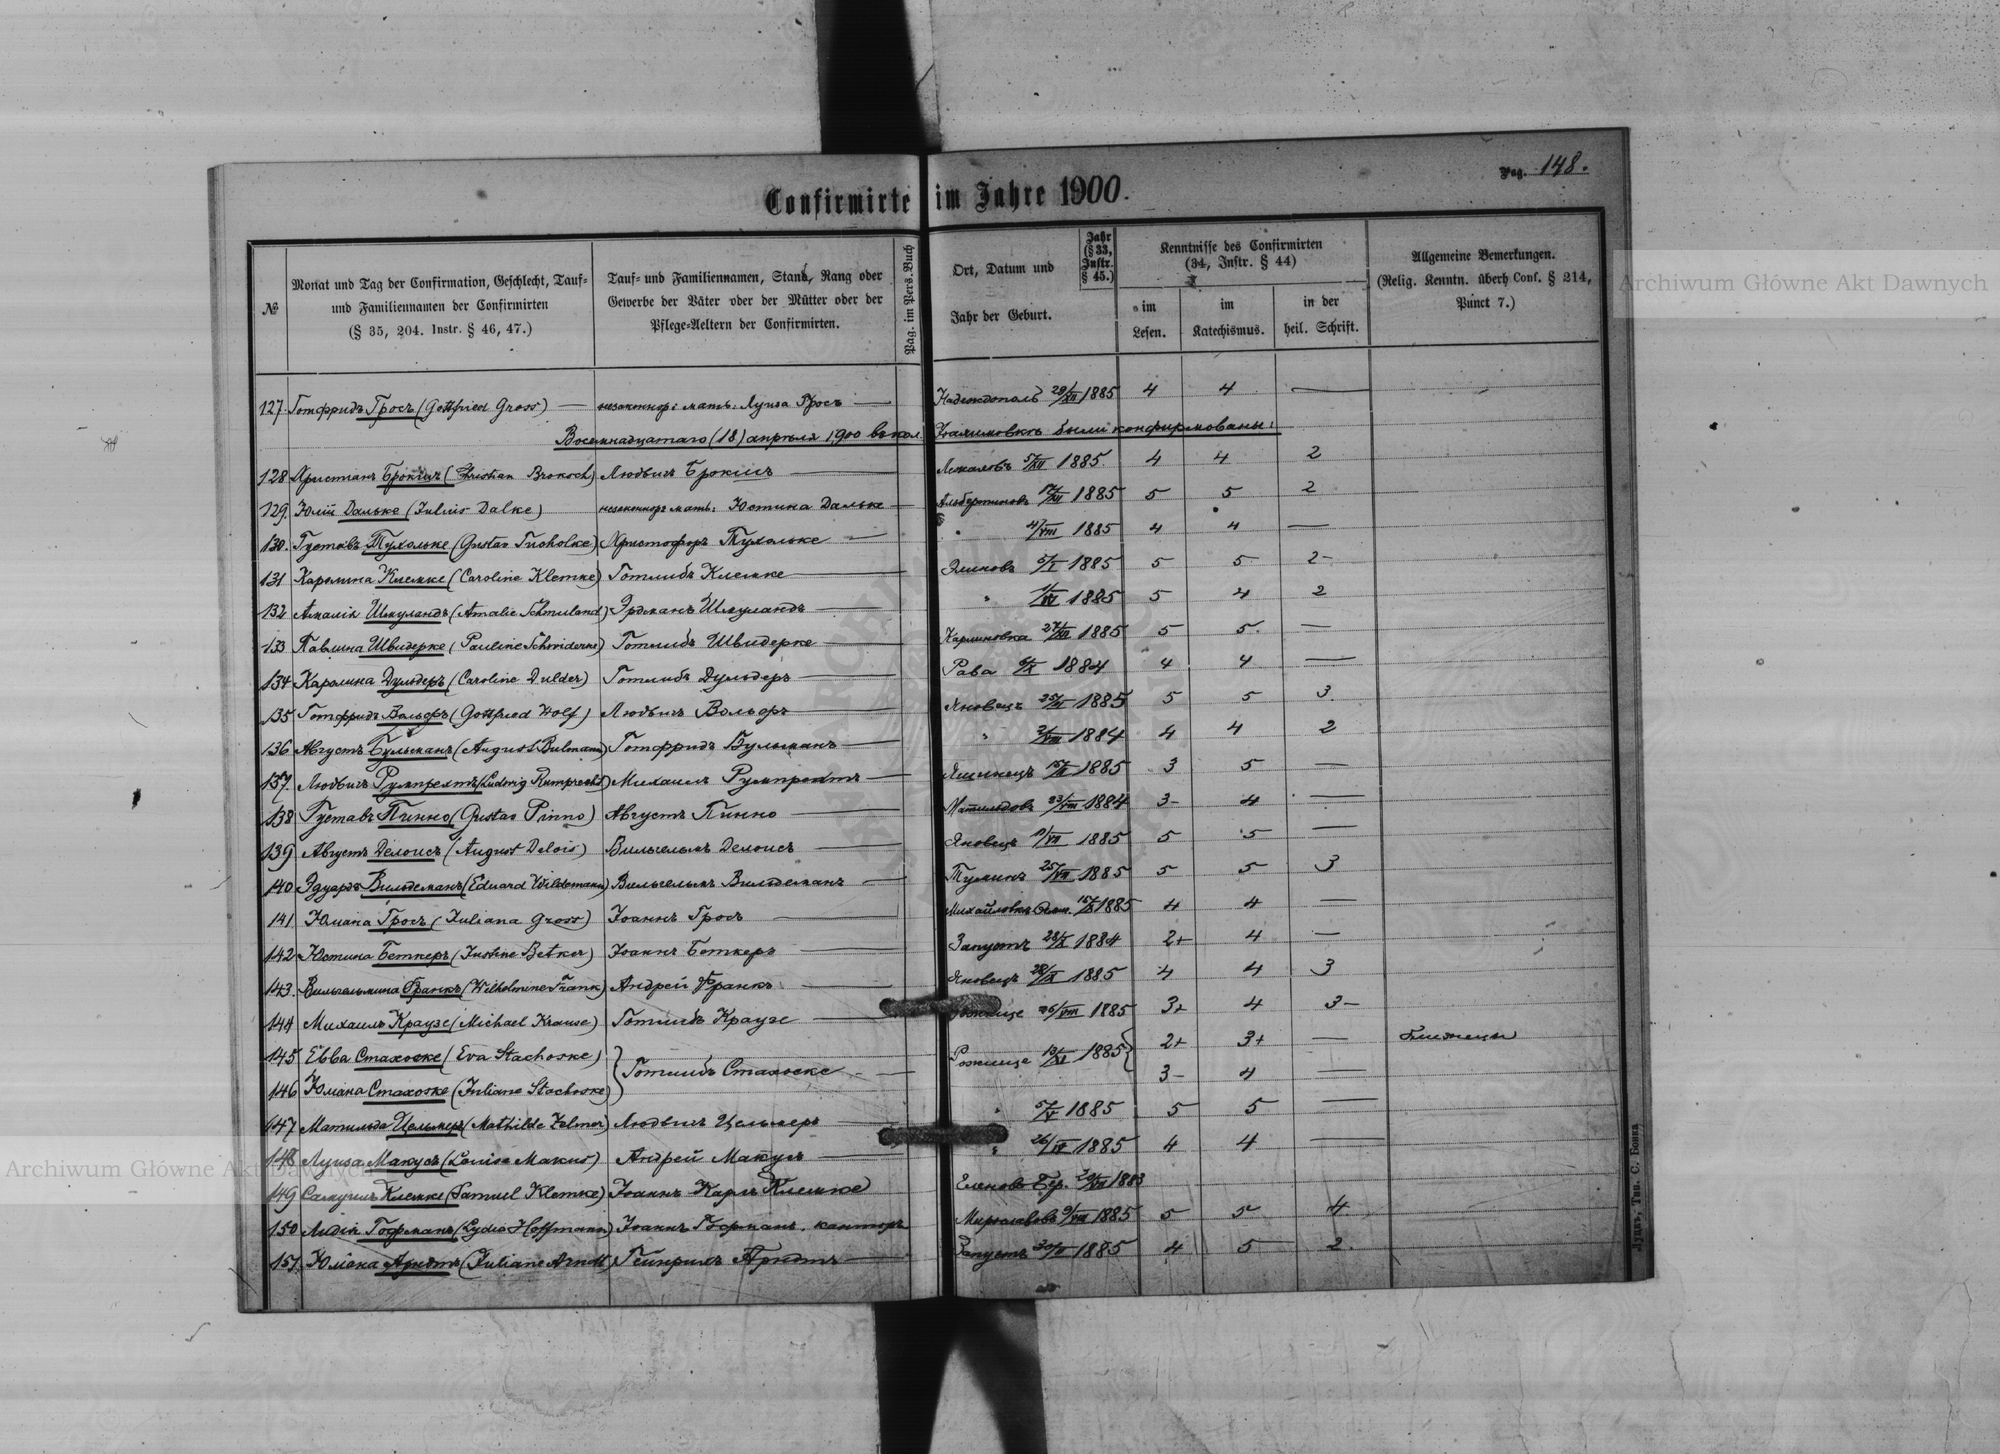 Pag. 148.
Confirmirte im Jahre 1900.
№
Monat und Tag der Confirmation, Geschlecht, Tauf-
und Familiennamen der Confirmirten
(§ 35, 204. Instr. § 46, 47.)
Tauf- und Familiennamen, Stand, Rang oder
Gewerbe der Väter oder der Mütter oder der
Pflege-Aeltern der Confirmirten.
Pag. im Pers.Buch
Ort, Datum und
Jahr der Geburt.
Jahr
(§ 33,
Instr.
§ 45.)
Kenntnisse des Confirmirten
(34, Instr. § 44)
im
Lesen.
im
Katechismus.
in der
heil. Schrift.
Allgemeine Bemerkungen.
(Relig. Kenntn. überh Conf. § 214,
Punct 7.)
127. Готфридъ Гросъ (Gottfried Gross) — незаконнор: мать: Луиза Гросъ — Надеждополь 29/XII 1885 4 4 —
Восемнадцатаго (18) апрѣля 1900 въ кол. были конфирмованы:
128 Христіанъ Брокшъ (Christian Broksch) Людвигъ Брокшъ — 5/XII 1885. 4 4 2
129. Юлій Дальке (Julius Dalke) незаконнор мать: Юстина Дальке — Альбертиновъ 1885 5 5 2
130. Густавъ Тухольке (Gustav Tucholke) Христофоръ Тухольке — " 4/VIII 1885 4 4 —
131 Каролина Клемке (Caroline Klemke) Готлибъ Клемке — 1885 5 5 2-
132 Амалія Шмуландъ (Amalie Schmuland) Эрдманъ Шмуландъ — " 1885 5 4 2
133 Павлина Швидерке (Pauline Schwiderke) Готлибъ Швидерке — Карлиновка 27/XII 1885 5 5. —
134 Каролина Дульдеръ (Caroline Dulder) Готлибъ Дульдеръ — Рава 1884 4 4 —
135 Готфридъ Вольфъ (Gottfried Wolf) Людвигъ Вольфъ — Яновецъ 1885 5 5 3
136 Августъ Бульманъ (August Bulmann) Готфридъ Бульманъ — " 2/VIII 1884 4 4 2
137. Людвигъ Румпрехтъ (Ludwig Rumprecht) Михаилъ Румпрехтъ — 1885 3 5 —
138 Густавъ Пинно (Gustav Pinno) Августъ Пинно — Матильдовъ 23/VIII 1884 3- 4 —
139 Августъ Делоисъ (August Delois) Вильгельмъ Делоисъ — Яновецъ 1885 5 5 —
140 Эдуардъ Вильдеманъ (Eduard Wildemann) Вильгельмъ Вильдеманъ — Туминъ 25/VII 1885 5 5 3
141 Юліана Гросъ (Juliana Gross) Іоаннъ Гросъ — Михайловка 1885 4 4 —
142 Юстина Беткеръ (Justine Betker) Іоаннъ Беткеръ — Запустъ 28/X 1884 2+ 4 —
143. Вильгельмина Франкъ (Wilhelmine Frank) Андрей Франкъ — Яновецъ 28/IX 1885 4 4 3
144 Михаилъ Краузе (Michael Krause) Готлибъ Краузе — 26/VIII 1885 3+ 4 3-
145 Евва Стахоске (Eva Stachoske) } Готлибъ Стахоске — Рожище 13/XI 1885 } 2+ 3+ — Близнецы
146 Юліана Стахоске (Juliane Stachoske) 3- 4 —
147 Матильда Цельмеръ (Mathilde Zelmer) Людвигъ Цельмеръ " 5/V 1885 5 5 —
148 Луиза Макусъ (Louise Makus) Андрей Макусъ — " 26/IV 1885 4 4 —
149 Самуилъ Клемке (Samuel Klemke) Іоаннъ Карлъ Клемке 1883
150 Лидія Гофманъ (Lydia Hoffmann) Іоаннъ Гофманъ, канторъ 9/VIII 1885 5 5 4
151. Юліана Арндтъ (Juliane Arndt) Гейнрихъ Арндтъ — Запустъ 1885 4 5 2.
Луцкъ, Тип. С. Бонка
Archiwum Główne Akt Dawnych
Archiwum Główne Akt Dawnych